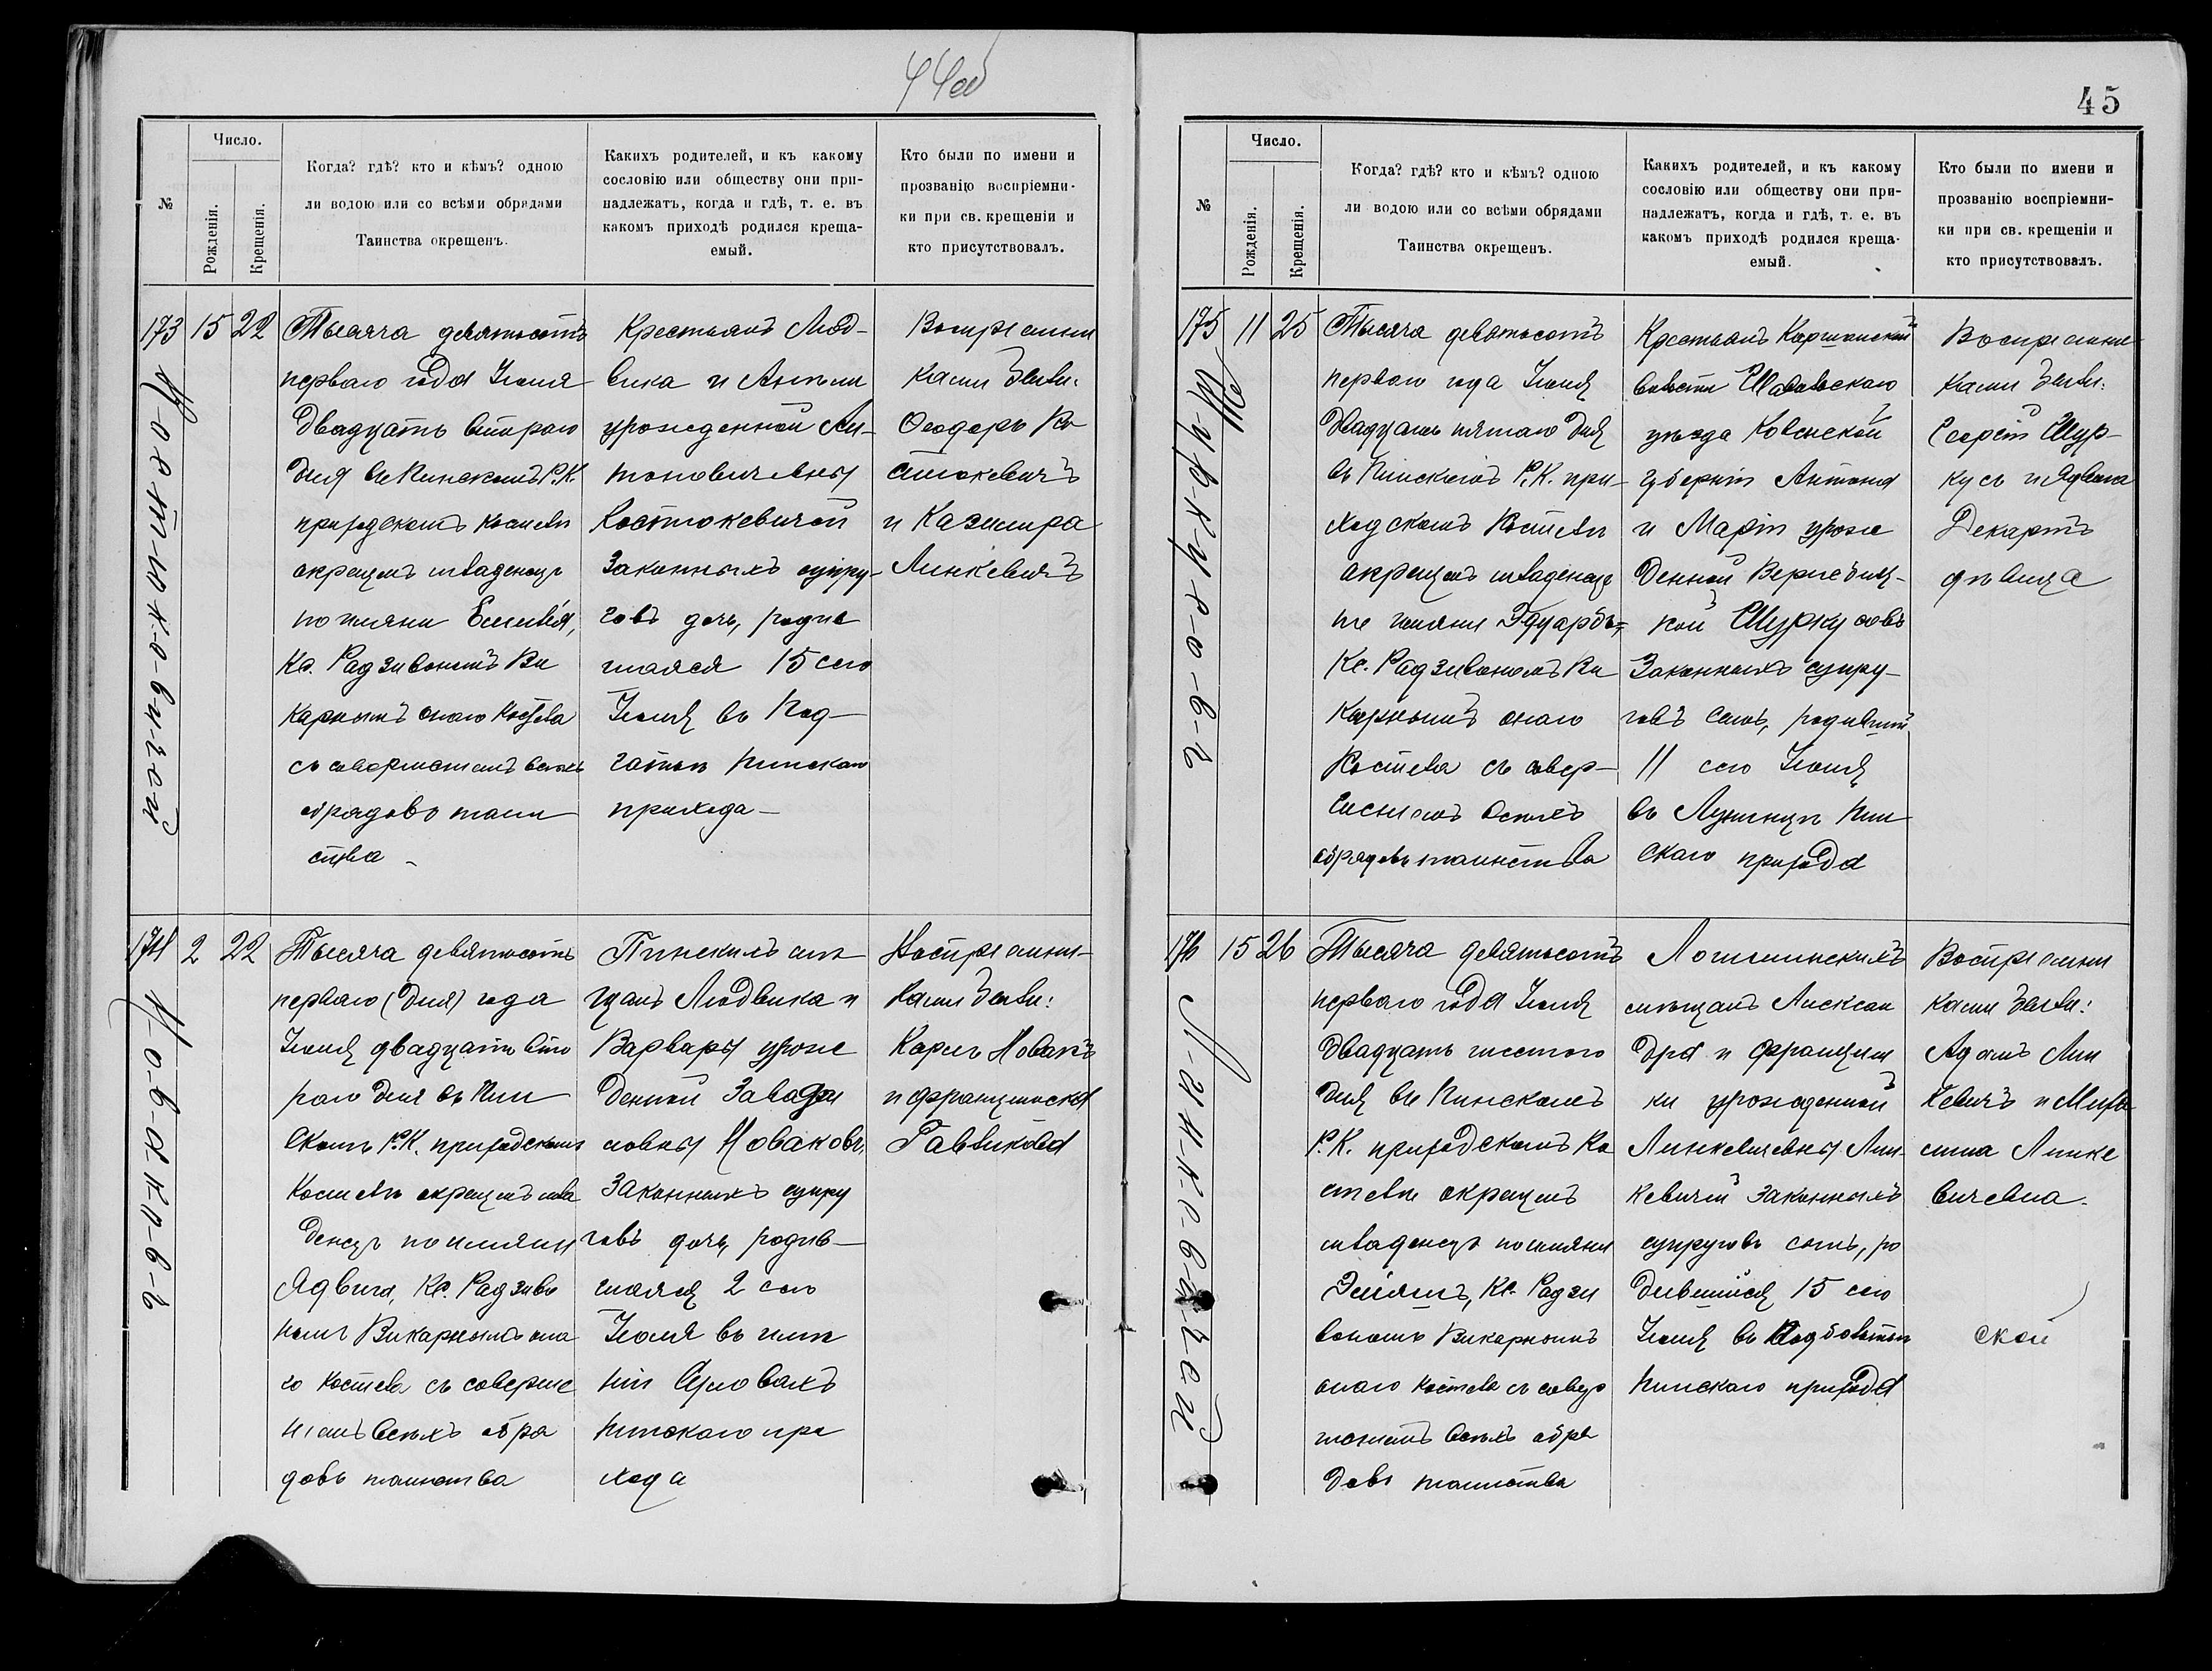 44об
№
Число.
Рожденія.
Крещенія.
Когда? гдѣ? кто и кѣмъ? одною
ли водою или со всѣми обрядами
Таинства окрещенъ.
Какихъ родителей, и къ какому
сословію или обществу они при-
надлежатъ, когда и гдѣ, т. е. въ
какомъ приходѣ родился креща-
емый.
Кто были по имени и
прозванію воспріемни-
ки при св. крещеніи и
кто присутствовалъ.
173
15
22
Тысяча девятьсотъ
перваго года Іюля
двадцать втораго
дня въ Пинскомъ Р.К.
приходскомъ костелѣ
окрещенъ младенецъ
по имяни Емилія,
Кс. Радзивономъ Ви
карнымъ онаго костела
съ совершеніемъ всѣхъ
обрядовъ таин
ства
Крестьянъ Люд-
вика и Анели
урожденной Ан-
тоновичевны
Костюкевичей
законныхъ супру-
говъ дочь, родив
шаяся 15 сего
Іюля въ Под-
гатьи Пинскаго
прихода
Воспріемни
ками были:
Ѳеодоръ Ко
стюкевичъ
и Казимира
Линкевичъ
К-о-с-т-ю-к-е-в-и-ч-е-й
174
2
22
Тысяча девятьсотъ
перваго (дня) года
Іюля двадцать вто
раго дня въ Пин
скомъ Р.К. приходскомъ
костелѣ окрещенъ мла
денецъ по имяни
Ядвига, Кс. Радзиво
номъ Викарнымъ она
го костела съ соверше
ніемъ всѣхъ обря
довъ таинства
Пинскихъ мѣ
щанъ Людвика и
Варвары урож
денной Завадзи
новны Новаковъ
законныхъ супру
говъ дочь, родив-
шаяся 2 сего
Іюля въ имѣ
ніи
Пинскаго при
хода
Воспріемни-
ками были:
Карлъ Новакъ
и Францишка
Равликова
Н-о-в-а-к-о-в-ъ
45
№
Число.
Рожденія.
Крещенія.
Когда? гдѣ? кто и кѣмъ? одною
ли водою или со всѣми обрядами
Таинства окрещенъ.
Какихъ родителей, и къ какому
сословію или обществу они при-
надлежатъ, когда и гдѣ, т. е. въ
какомъ приходѣ родился креща-
емый.
Кто были по имени и
прозванію воспріемни-
ки при св. крещеніи и
кто присутствовалъ.
175
11
25
Тысяча девятьсотъ
перваго года Іюля
двадцать пятаго дня
въ Пинскомъ Р.К. при-
ходскомъ костелѣ
окрещенъ младенецъ
по имяни Эдуардъ,
Кс. Радзивономъ Ви
карнымъ онаго
костела съ совер-
шеніемъ всѣхъ
обрядовъ таинства
Крестьянъ Коршанской
волости Шавельскаго
уѣзда Ковенской
губерніи Антона
и Маріи урож
денной
кой Шуркусовъ
законныхъ супру-
говъ сынъ, родившійся
11 сего Іюля
въ Лунинцѣ Пин
скаго прихода
Воспріемни
ками были:
Шур-
кусъ и Ядвига
Декартъ
дѣвица
Ш-у-р-к-у-с-о-в-ъ
176
15
26
Тысяча девятьсотъ
перваго года Іюля
двадцать шестого
дня въ Пинскомъ
Р.К. приходскомъ ко
стелѣ окрещенъ
младенецъ по имяни
Кс. Радзи
вономъ Викарнымъ
онаго костела съ совер
шеніемъ всѣхъ обря
довъ таинства
Логишинскихъ
мѣщанъ Алексан
дра и Францишки
ки урожденной
Линкевичевны Лин
кевичей законныхъ
супруговъ сынъ, ро
дившійся 15 сего
Іюля въ Подболотьи
Пинскаго прихода
Воспріемни
ками были:
Адамъ Лин
кевичъ и
Линке
вичевна.
ской
Л-и-н-к-е-в-и-ч-е-й